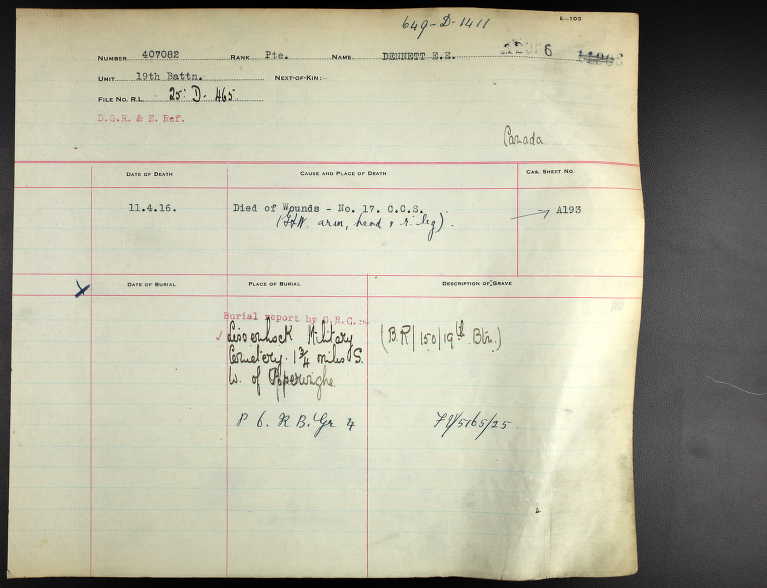 649-D-1411
E-103
NUMBER 407082 RANK Pte. NAME DENNETT E.E. 6
UNIT 19th Battn. NEXT-OF-KIN:-
FILE NO. R.L. 25-D-465
D.G.R. & E. Ref.
Canada
DATE OF DEATH CAUSE AND PLACE OF DEATH CAS. SHEET NO.
11.4.16. Died of Wounds - No. 17. C.C.S. A193
arm, head & r. leg).
DATE OF BURIAL PLACE OF BURIAL DESCRIPTION OF GRAVE
Burial report by G.R.C.:-
Lissenhock Military (B.R/150/19th Btn.)
Cemetery. 1 3/4 miles S.
W. of Poperinghe
P 6. R B. Gr 4